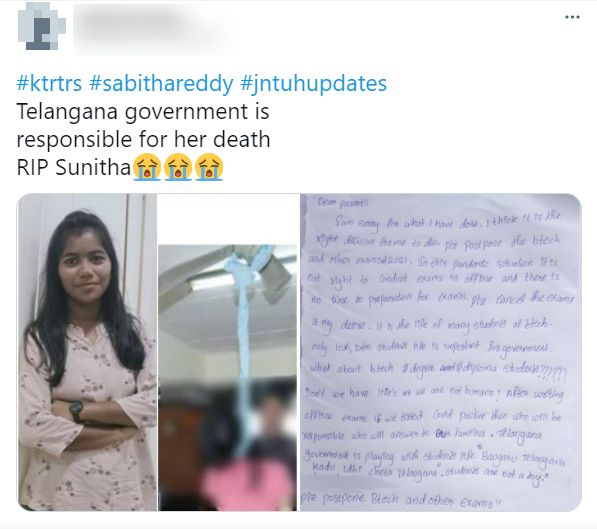 #ktrtrs #sabithareddy #jntuhupdates
Telangana government is
responsible for her death
RIP Sunitha😭😭😭
Dear parents
Iam sorry for what I have done. I think it is the
right decision for me to die. plz postpone the btech
and other exams@2021. In this pandemic situation it is
not right to conduct exams in offline and there is
no time to preparation for exams. plz cancel the exams
it my desire. It is the life of many students of btech.
only students life is important for government.
what about btech & degree and diploma students??????
Don't we have life's or we are not humans! After writing
offline exams if we tested covid positive then who will be
responsible who will answer to our families. Telangana
government is playing with students life "Bangaru Telangana
kadu, idhi Telangana". students are not a toy."
plz postpone Btech and other exams"